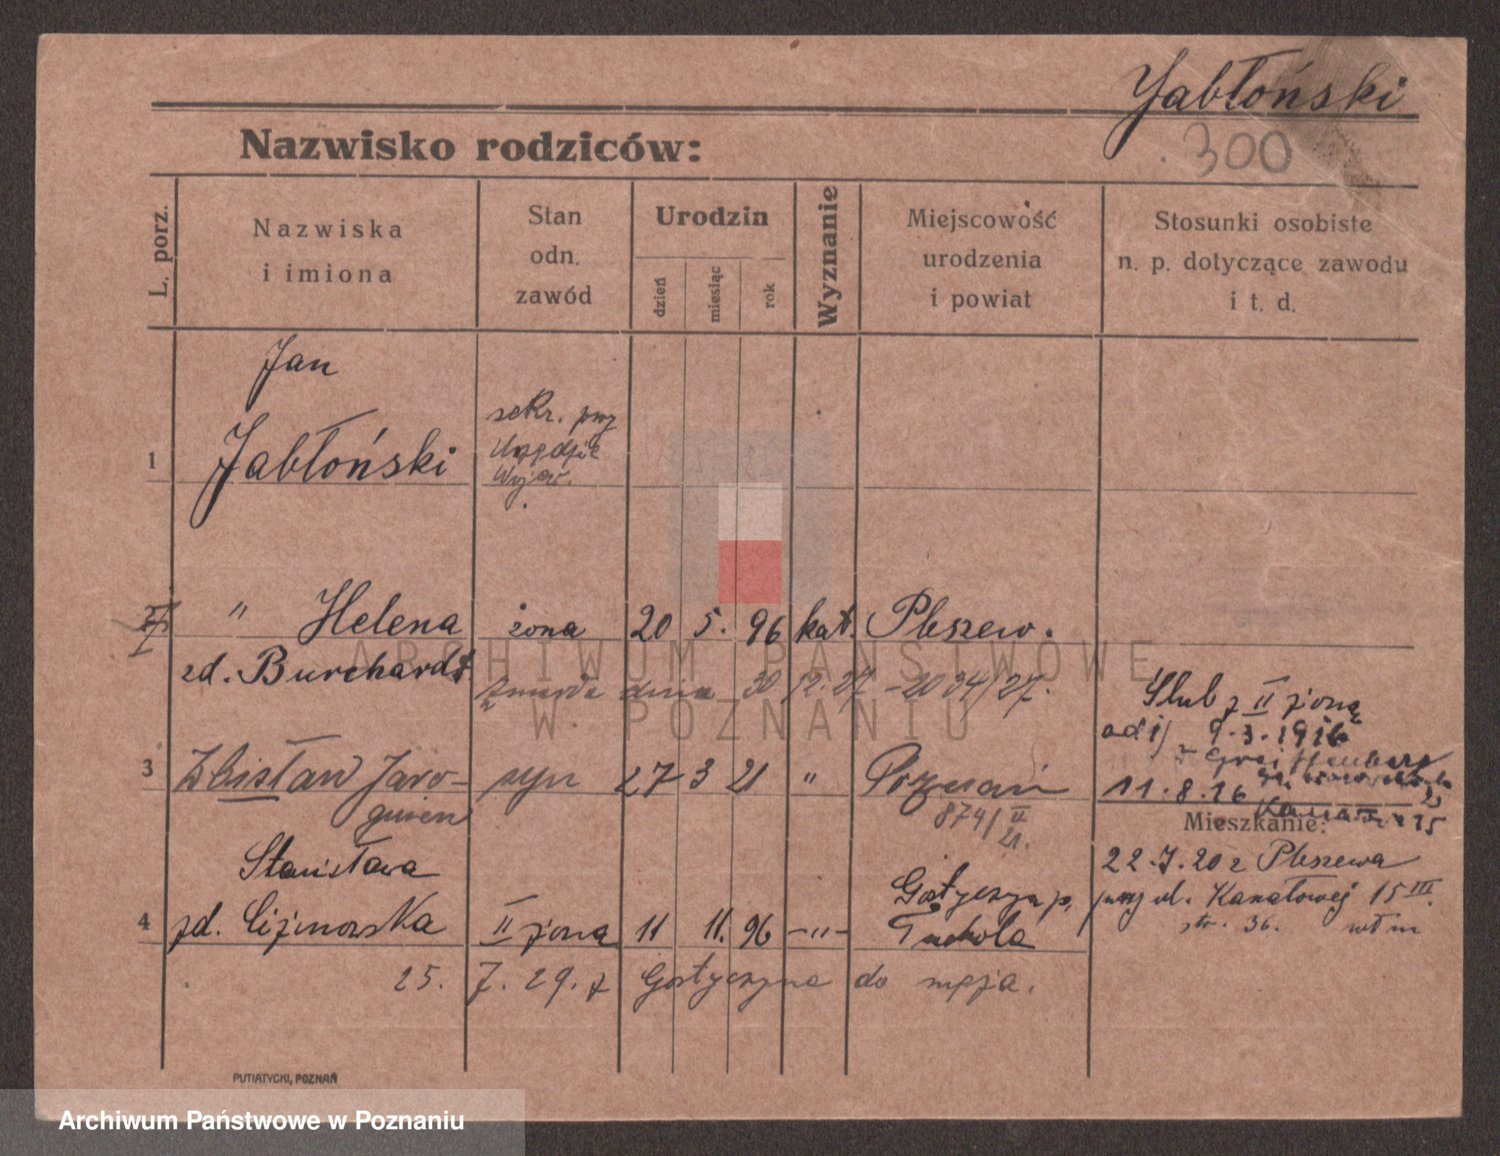 Jabłoński
300
Nazwisko rodziców:
L. porz.
Nazwiska
i imiona
Stan
odn.
zawód
Urodzin
dzień
miesiąc
rok
Wyznanie
Miejscowość
urodzenia
i powiat
Stosunki osobiste
n. p. dotyczące zawodu
i t. d.
Jan
1 Jabłoński
sekr. przy
Urzędzie
Wojew.
" Helena żona 20 5. 96 kat. Pleszew.
zd. Burchardt
zmarła dnia 30 12. 27 - 2034/27.
Ślub z II żoną
ad 1) 9.3.1916
3 Zbisław Jaro-
gniew
syn 27 3 21 " Poznań
874/II
21.
11.8.16
Mieszkanie:
22.7.20 z Pleszewa
przy ul. Kanałowej 15 III.
str. 36.
Stanisława
4 zd. Ciżmowska II żona 11 11. 96 -"- Gostyczyn p.
Tuchola
25. 7. 29. z Gostyczyna do męża.
PUTIATYCKI, POZNAŃ
ARCHIWUM PAŃSTWOWE
W POZNANIU
Archiwum Państwowe w Poznaniu